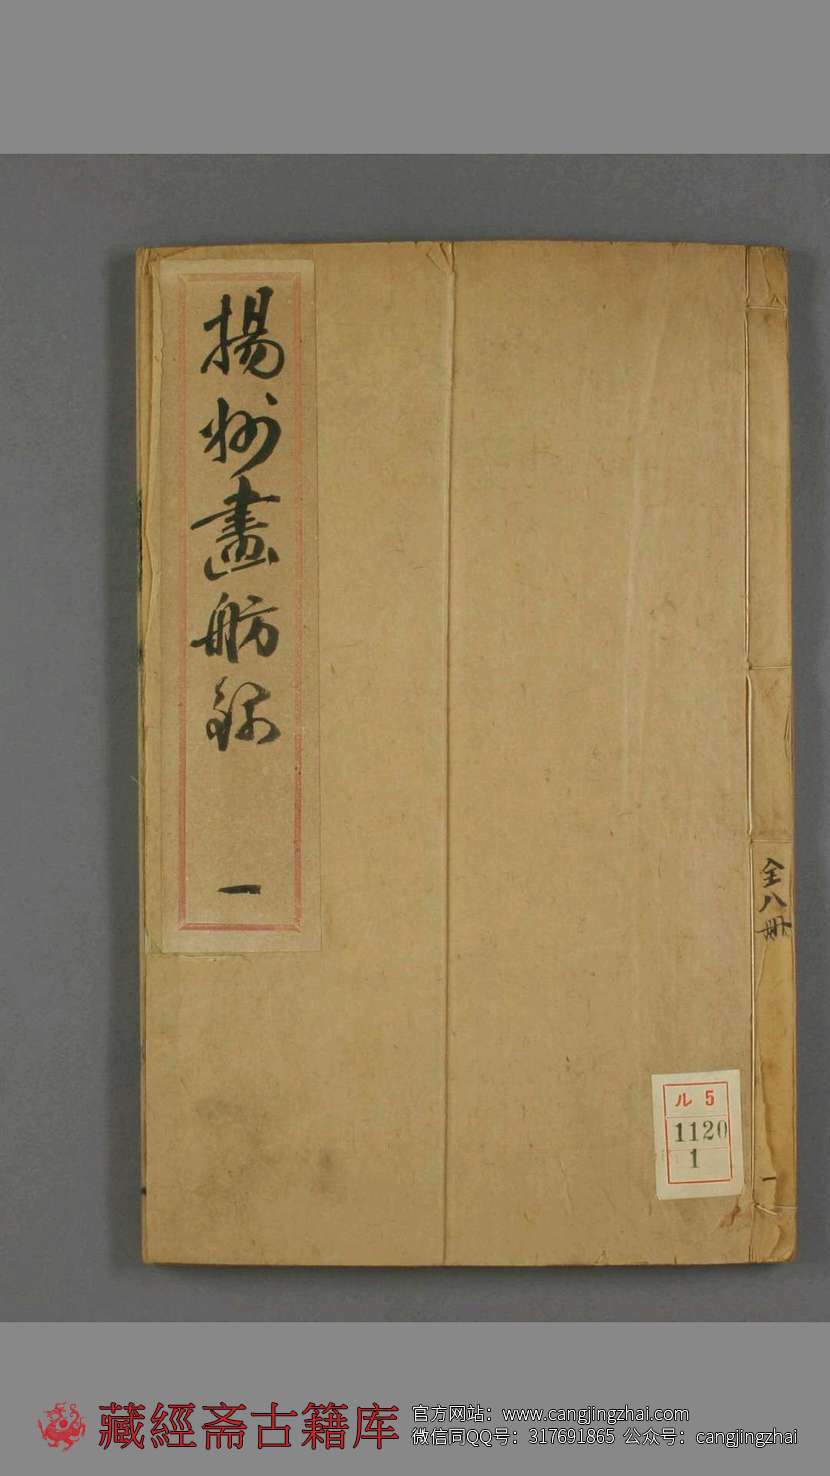 揚州畫舫錄
一
全八冊
一
ル 5
1120
1
藏經斋古籍库
官方网站：www.cangjingzhai.com
微信同QQ号：317691865 公众号：cangjingzhai